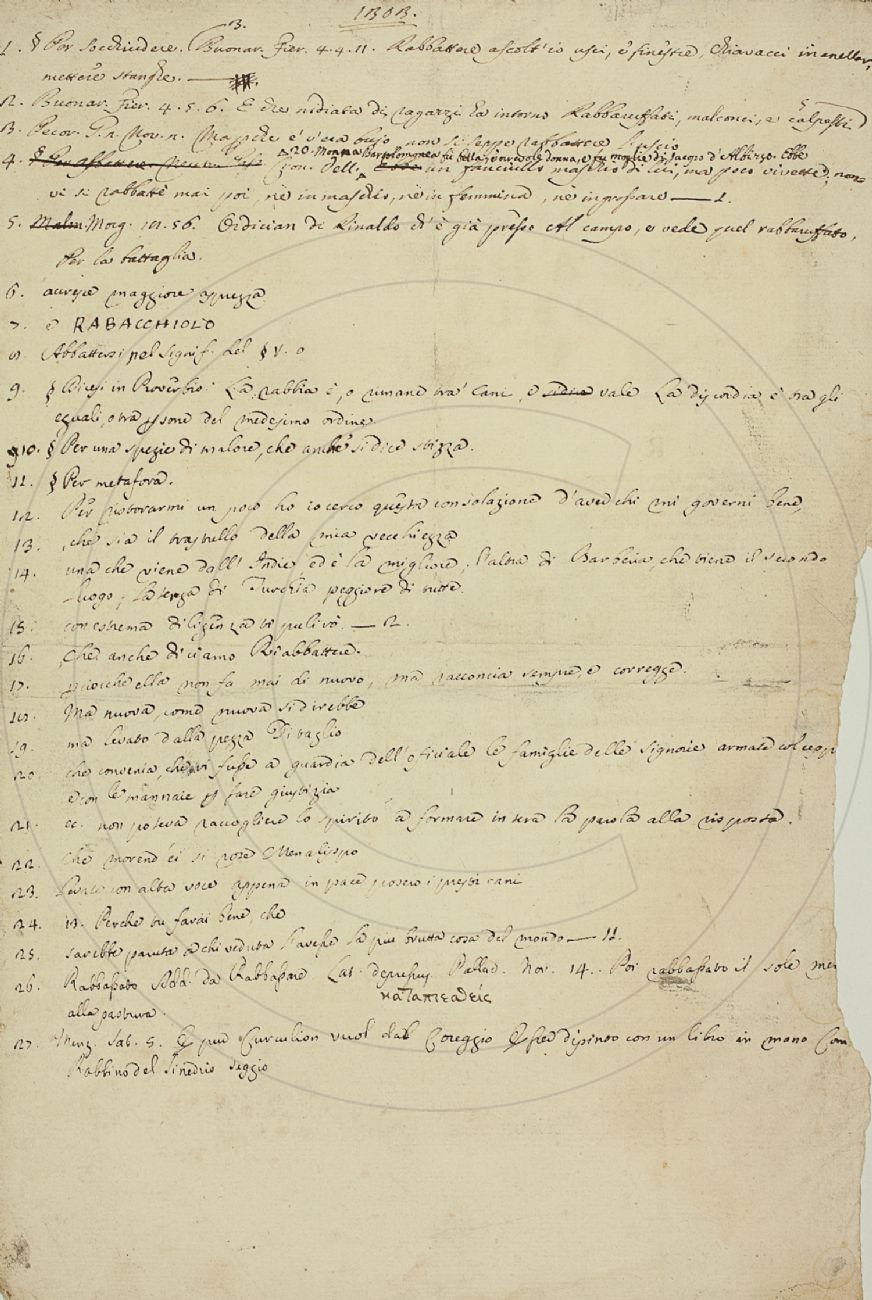 1303.
3.
1. § Per Socchiudere. Buonar. Fier. 4. 4. 11. Rabbattere ascolt' io usci, e finestre, Chiavacci inanellar,
mettere stanghe. —
2. Buonar. Fier. 4. 5. 6. E che nidiata di ragazzi la intorno Rabbaruffati, malconci, e calpesti
3. Pecor. G. n. Nov. n. ... non si seppe rabbattere l'uscio
20. Monna Bartolomea fu bella, favorevole donna, e fu moglie di Jacopo d' Albizzo. Ebbe
4. Zon. Vell. un fanciullo maschio di lei, ma poco vivette, non
vi si rabbattè mai poi, nè in maschio, nè in femmina, nè in grossare — 1.
5. Malm. Morg. 10. 56. Chidician di Rinaldo ch' è già presso Al campo, e vede quel rabbaruffato,
Per la battaglia.
6. avesse maggiore asprezza
7. e RABACCHIOLO
8. Abbattersi nel signif. del § V. o
9. § Dicesi in Proverbio: La rabbia è, o rimane tra' Cani, e vale La discordia è tra gli
eguali, o tra persone del medesimo ordine
10. § Per una spezie di malore, che anche si dice stizza.
11. § Per metafora.
12. Per ristorarmi un poco ho io cerco questa consolazione d'aver chi mi governi bene,
13. che sia il trastullo della mia vecchiezza
14. una che viene dall' Indie ed è la migliore; l'altra di Barberia, che tiene il secondo
luogo; la terza di Turchia peggiore di tutte.
15. con estrema diligenza ti pulirò — 2.
16. Che anche diciamo Riabbattere.
17. perciocchè ella non fa mai di nuovo, ma racconcia sempre, e corregge.
18. Ma nuova, come nuova si direbbe
19. ma levato dalla pezza Di taglio
20. che convenia, che vi fusse a guardia dell' oficiale le famiglie delle Signorie armate col cepp
e con le mannaie per fare giustizia
21. ec. non poteva raccogliere lo spirito a formare intera la parola alla risposta.
22. Che morend' ei si rose Menalippo
23. Levati con alta voce appena in pace posero i questi cani
24. 13. Perche tu farai bene, che
25. sarebbe paruta a chi veduta l'avesse la piu brutta cosa del mondo — 11.
26. Rabbassato Add. da Rabbassare Lat. depressus. Pallad. Nov. 14. Poi rabbassato il sole
καταπιεσθείς
alla pastura.
27. Menz. Sat. 5. E piu Curculion vuol dal Coreggio Esser dipinto con un libro in mano Com
Rabbino del Sinedrio seggio